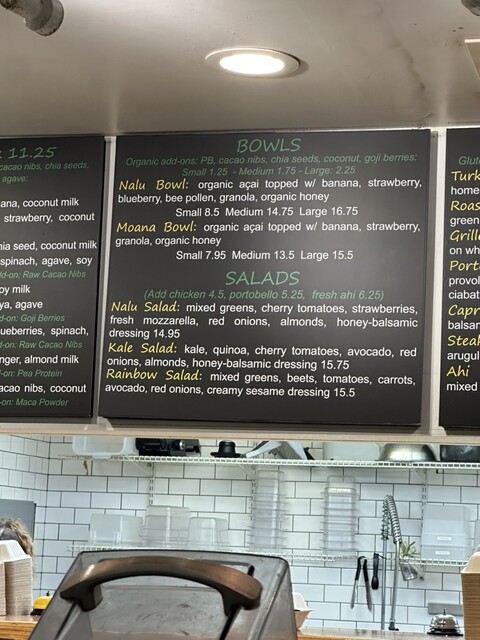 : 11.25
cacao nibs, chia seeds,
agave:
ana, coconut milk
strawberry, coconut
hia seed, coconut milk
spinach, agave, soy
dd-on: Raw Cacao Nibs
oy milk
ya, agave
d-on: Goji Berries
ueberries, spinach,
dd-on: Raw Cacao Nibs
nger, almond milk
d-on: Pea Protein
acao nibs, coconut
-on: Maca Powder
BOWLS
Organic add-ons: PB, cacao nibs, chia seeds, coconut, goji berries:
Small 1.25 - Medium 1.75 - Large: 2.25
Nalu Bowl: organic açai topped w/ banana, strawberry,
blueberry, bee pollen, granola, organic honey
Small 8.5 Medium 14.75 Large 16.75
Moana Bowl: organic açai topped w/ banana, strawberry,
granola, organic honey
Small 7.95 Medium 13.5 Large 15.5
SALADS
(Add chicken 4.5, portobello 5.25, fresh ahi 6.25)
Nalu Salad: mixed greens, cherry tomatoes, strawberries,
fresh mozzarella, red onions, almonds, honey-balsamic
dressing 14.95
Kale Salad: kale, quinoa, cherry tomatoes, avocado, red
onions, almonds, honey-balsamic dressing 15.75
Rainbow Salad: mixed greens, beets, tomatoes, carrots,
avocado, red onions, creamy sesame dressing 15.5
Glute
Turk
home
Roas
green
Grille
on wh
Porto
provol
ciabat
Capr
balsan
Steak
arugul
Ahi
mixed